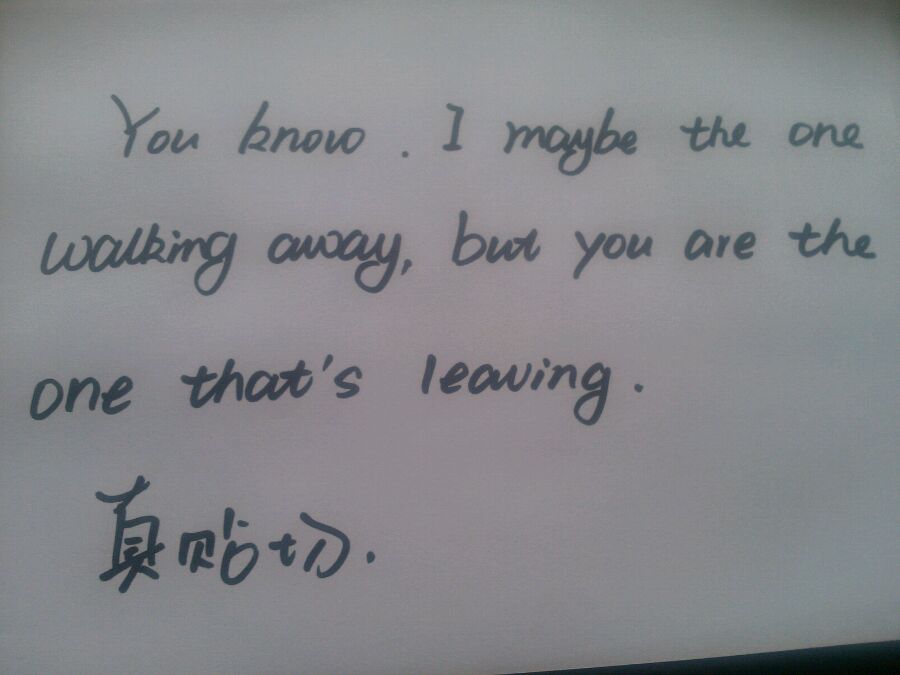 You know . I maybe the one
walking away, but you are the
one that's leaving .
真贴切.